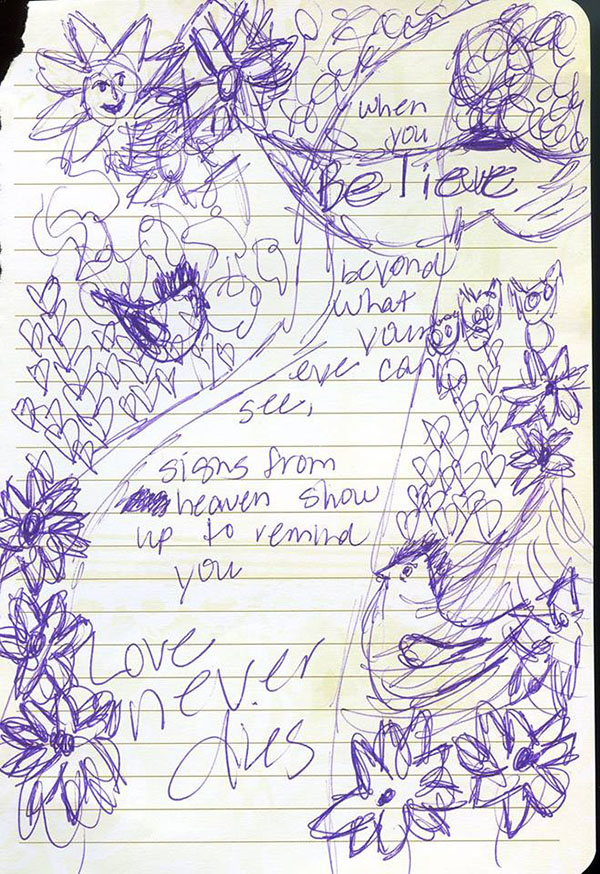 when
you
Believe
beyond
what
your
eye can
see,
signs from
heaven show
up to remind
you
Love
never
dies